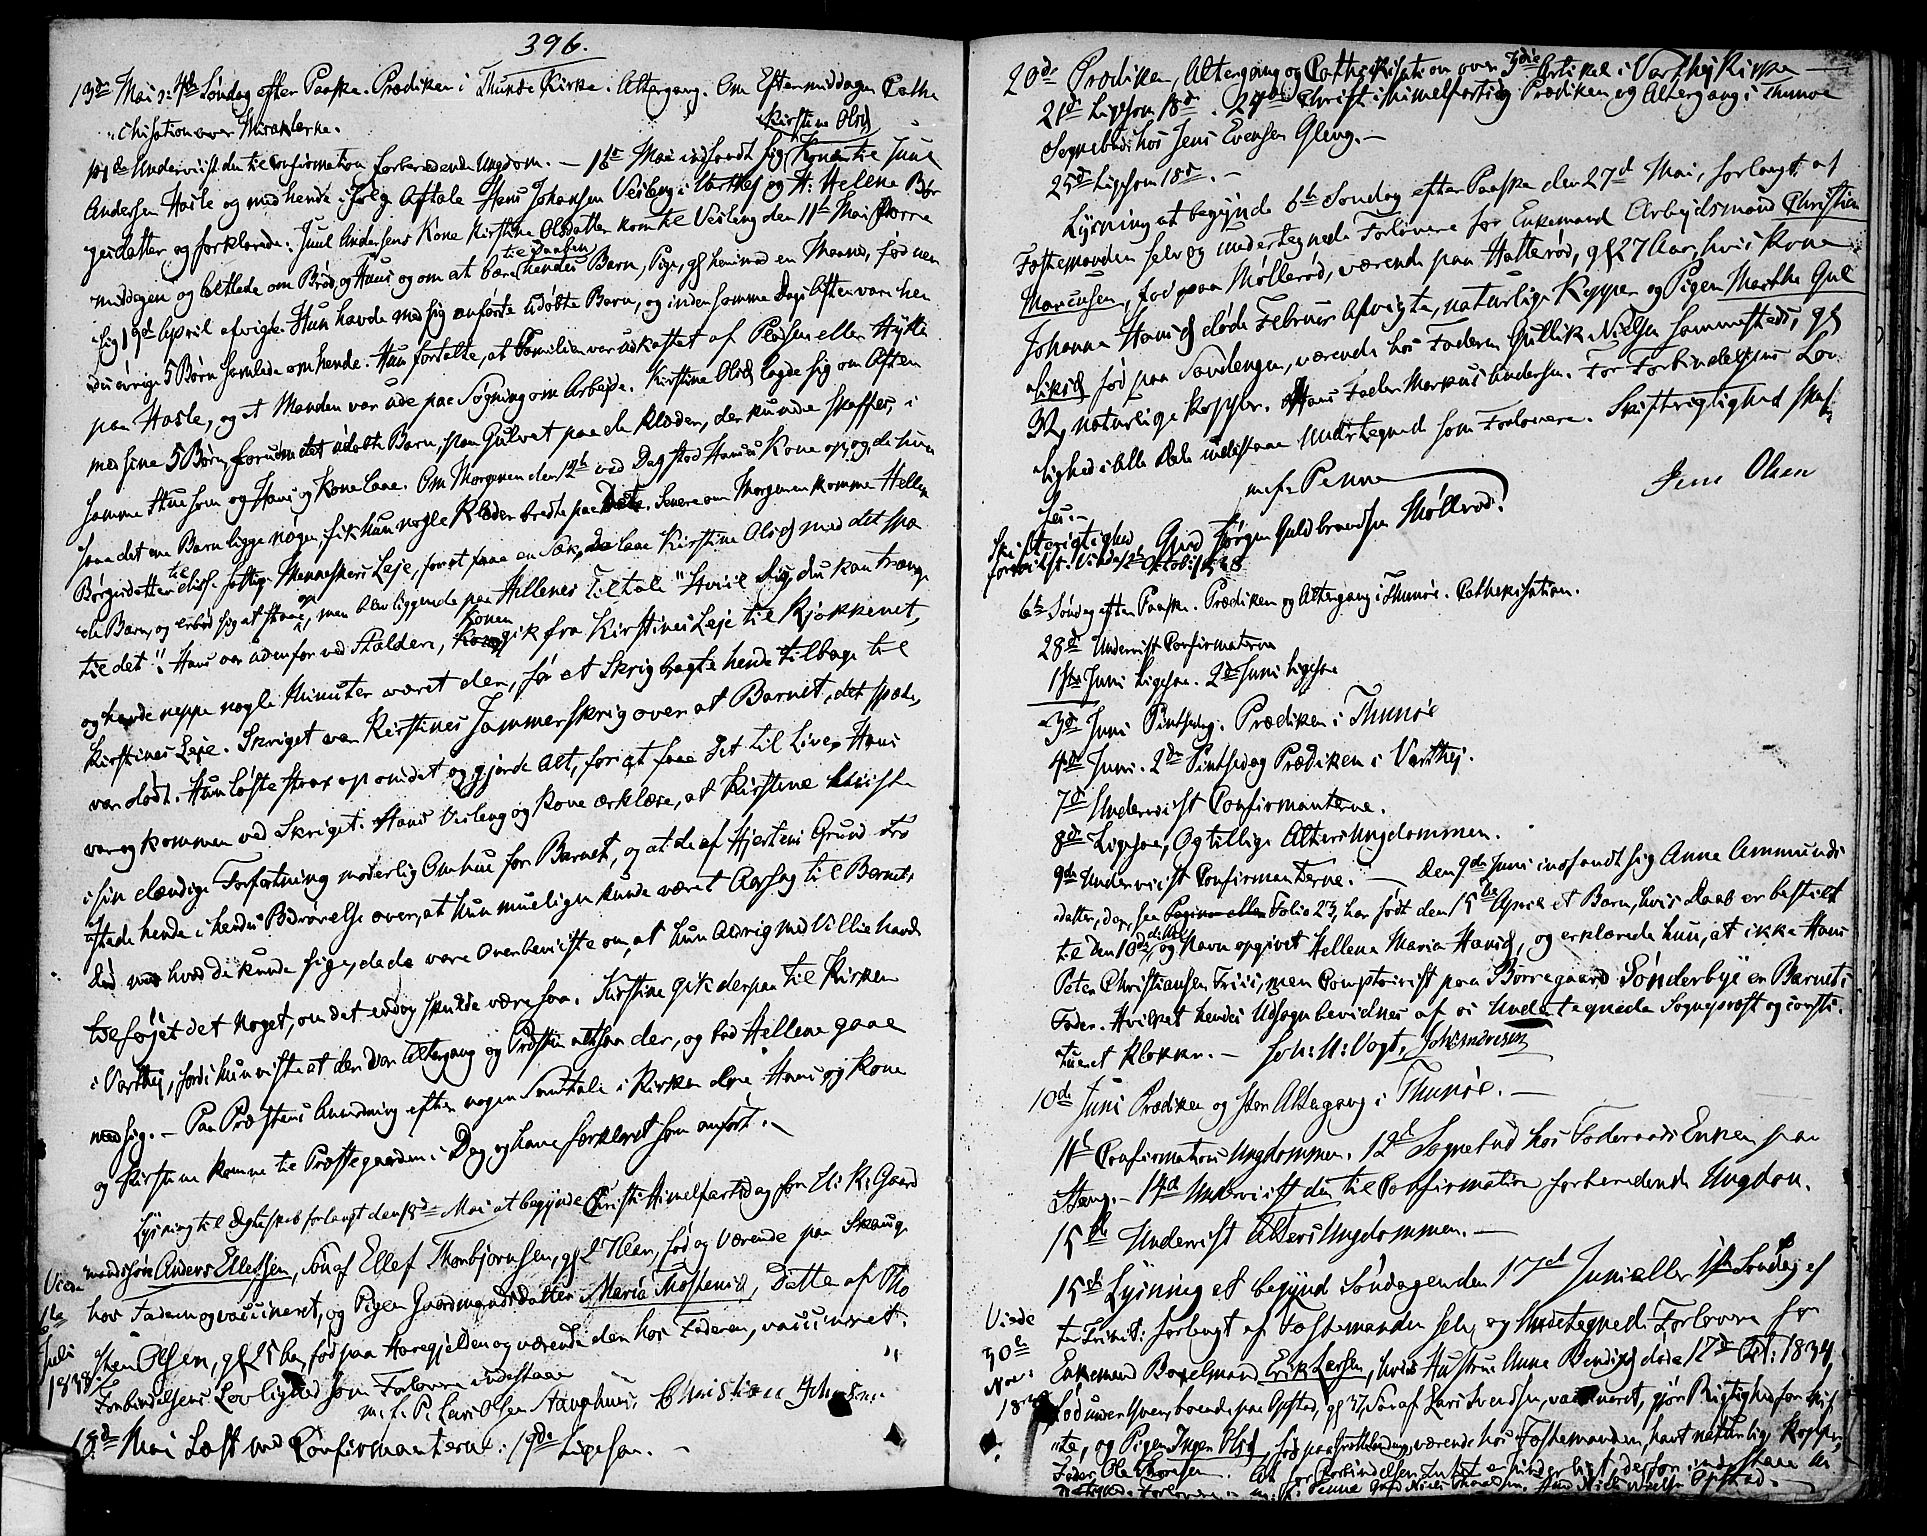 396.
13de Mai: 4de Søndag efter Paaske. Prædiken i Thunøe Kirke. Altergang. Om Eftermiddagen Cathe
chisation over Miraklerne.
14de Underviist den til Confirmation forberedende Ungdom. — 16de Mai indfandt sig Konen til Juul
Kirstine Olsd.
Andersen Hasle og med hende ifølge Aftale Hans Johansen Visleng i Varthej og H: Helena Bør
gesdatter og forklarede: Juul Andersens Kone Kirstine Olsdatter kom til Visleng den 11te Mai Morre
middagen og betlede om Brød, og Huus og om at bære hendes Barn, Pige,
til Daaben
sig 19de April afvigte. Hun havde med sig anførte udøbte Barn, og inden samme Dags Aften vare hen
des øvrige 5 Børn samlede om hende. Hun fortalte, at Familien var udkastet af Pladsen eller Hytte
paa Hasle, og at Manden var ude paa Søgning om Arbejde. Kirstine Olsd. lagde sig om Aften
med sine 5 Børn, foruden det udøbte Barn, paa Gulvet paa de Klæder, der kunde skaffes, i
samme Stue som og Hans og Kone laae. Om Morgenen den 12te ved Dag stod Hans's Kone op, og, da hun
saae det ene Barn ligge nøgen, fik hun nogle Klæder bredte paa Dette. Senere om Morgenen komme Hellen
Børgesdatter til disse fattige Menneskers Leje, for at faae en Sæk, da laae Kirstine Olsd. med det spæ
de Barn, og erbød sig at staae op, men blev liggende paa Hellenes Tiltale "Hviil dig, du kan trænge
til det". Hans var udenfor ved Stalden, Konen gik fra Kirstines Leje til Kjøkkenet,
og havde neppe nogle Minuter været der, før et Skrig bragte hende tilbage til
Kirstines Leje. Skriget var Kirstines Jammerskrig over at Barnet, det spæde,
var dødt. Hun løste strax op om det og gjorde Alt, for at faae det til Live. Hans
var og kommen ved Skriget. Hans Visleng og Kone erklære, at Kirstine beviiste
i sin elendige Forfatning moderlig Omhue for Barnet, og at de af Hjertens Grund trø
stede hende i hendes Bedrøvelse over, at hun mueligen kunde været Aarsag til Barnets
Død med hvad de kunde sige, da de vare overbeviiste om, at hun aldrig med Villie havde
tilføjet det Noget, om det endog skulde være saa. Kirstine gik derpaa til Kirken
i Varthej, fordi hun vidste at der var Altergang og Præsten altsaa der, og bad Hellene gaae
med sig. — Paa Præstens Anviisning efter nogen Samtale i Kirken ere Hans og Kone
og Kirstine komne til Præstegaarden i Dag og have forklaret som anført. —
Lysning til Ægteskab forlangt den 18de Mai at begynde Christi Himmelfartsdag for
mandssøn Anders Ellefsen, Søn af Ellef Thorbjørnsen, gl 27 Aar, fød og værende paa Skauge
hos Faderen og vaccineret, og Pigen Gaardmandsdatter Maria Thostensd., Datter af Tho
sten Olsen, gl 25 Aar, fød paa Haregjelden og værende der hos Faderen, vaccineret.
Forbindelsens Lovlighed som Forlovere indestaae
m. f. P. Lars Olsen Stanghuus, Christian Johnsen
Viede
1te
Juli
1838
18de Mai Læst med Confirmanterne: 19de Ligesaa. —
20de Prædiken, Altergang og Cathechisation over 3die Artikel i Varthej Kirke —
21de Ligesaa 18de. 24de Christi Himelfartsdag Prædiken og Altergang i Thunøe
Sognebud: hos Jens Evensen Gleng. —
25de Ligesaa 18de. —
Lysning at begynde 6te Søndag efter Paaske den 27de Mai, forlangt af
Fæstemanden selv og undertegnede Forlovere for Enkemand Arbejdsmand Christian
Marcusen, fød paa Møllerød, værende paa Hatterød, gl 27 Aar, hvis Kone
Johanna Hansd. døde Februar afvigte, naturlige Kopper og Pigen Marthe Gul
liksd. fød paa Sandengen, værende hos Faderen Gullik Nielsen sammesteds, gl
32, naturlige Kopper. Hans Fader Markus Andersen. For Forbindelsens Lov
lighed i Alle Dele indestaae Undertegnede som Forlovere. Skifterigtighed skal
sees.
m. f. Penne
Jens Olsen
Gaard Jørgen Guldbrandsen Møllrød.
Skifterigtighed
foreviist. Viede 12te Octobr 1838
6te Søndag efter Paaske. Prædiken og Altergang i Thunøe. Cathekisation.
28de Underviist Confirmanterne
1ste Juni Ligesaa. 2de Juni Ligesaa
3de Juni Pintsedag. Prædiken i Thunøe
4de Juni. 2de Pintsedag Prædiken i Varthej.
7de Underviist Confirmanterne.
8de Ligesaa, Og tillige Alters Ungdommen.
9de Underviist Confirmanterne. — Den 9de Juni indfandt sig Anne Ammunds
datter, der, see Pagina eller Folio 23, har født den 15de April et Barn, hvis Daab er bestilt
til den 10de dennes, og Navn opgivet Hellena Maria Hansd., og erklærede hun, at ikke Hans
Peter Christiansen Friis, men Comptoirist paa Borregaard Sønderbye er Barnets
Fader. Hvilket hendes Udsagn bevidnes af os Undertegnede Sogneprest og consti
tueret Klokker. — Joh: H: Vogt,
10de Juni Prædiken og stor Altergang i Thunøe. —
11te Confirmations Ungdommen. 12te Sognebud hos Føderaads Enken paa
Stang. — 14de Underviist den til Confirmation forberedende Ungdom.
15de Underviist Alters Ungdommen. —
15de Lysning at begynde Søndagen den 17de Juni eller 1ste Søndag ef
ter Trinit: forlangt af Fæstemanden selv, og Undertegnede Forlovere for
Enkemand Boxelmand Erik Larsen, hvis Hustru Anne Bendixd. døde 12te Oct: 1834,
boende paa Opstad, gl 37, Søn af Lars Svendsen, vaccineret, gjør Rigtighed for Skif
te, og Pigen Inger Olsd., fød paa værende hos Fæstemanden, havt naturlige Kopper,
Fader Ole Thorsen. At for Forbindelsen Intet er hinderligt, derfor indestaae
Forlovere: m. f. Penne Gaard Niels Opstad.
Viede
30te
Nov:
183